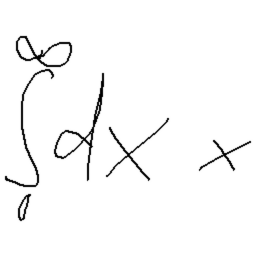 ∫₀^∞ dx x